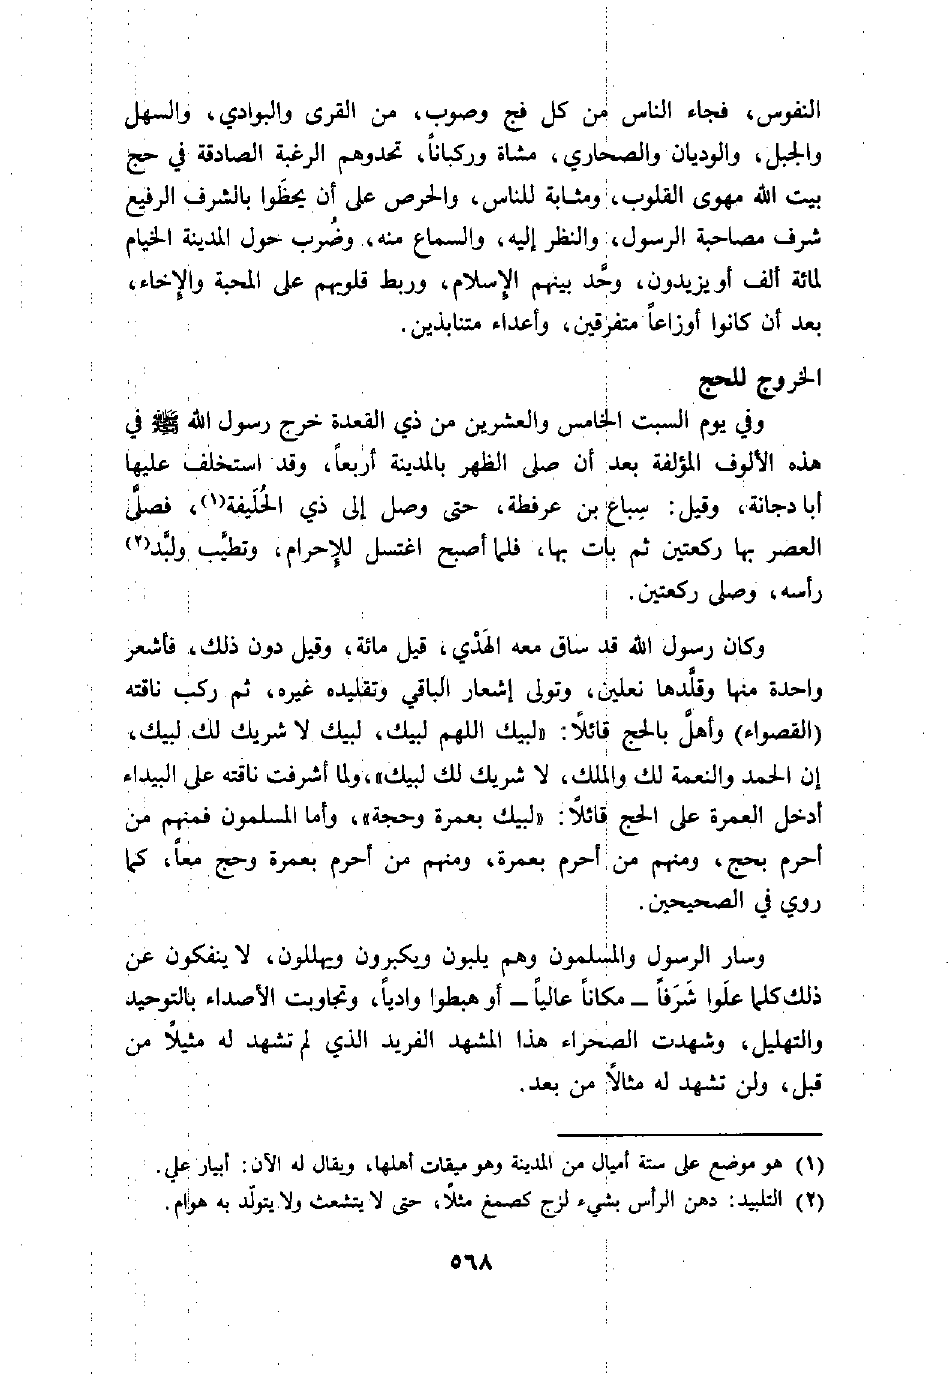 النفوس، فجاء الناس من كل فج وصوب، من القرى والبوادي، والسهل
والجبل، والوديان والصحاري، مشاة وركباناً، تحدوهم الرغبة الصادقة في حج
بيت الله مهوى القلوب، ومثابة للناس، والحرص على أن يحظَوا بالشرف الرفيع
شرف مصاحبة الرسول، والنظر إليه، والسماع منه، وضُرب حول المدينة الخيام
لمائة ألف أو يزيدون، وحَّد بينهم الإسلام، وربط قلوبهم على المحبة والإخاء،
بعد أن كانوا أوزاعاً متفرقين، وأعداء متنابذين.
الخروج للحج
وفي يوم السبت الخامس والعشرين من ذي القعدة خرج رسول الله ﷺ في
هذه الألوف المؤلفة بعد أن صلى الظهر بالمدينة أربعاً، وقد استخلف عليها
أبا دجانة، وقيل: سِباع بن عرفطة، حتى وصل إلى ذي الحُلَيفة(١)، فصلَّى
العصر بها ركعتين ثم بات بها، فلما أصبح اغتسل للإحرام، وتطيَّب ولبَّد(٢)
رأسه، وصلى ركعتين.
وكان رسول الله قد ساق معه الهَدْي، قيل مائة، وقيل دون ذلك، فأشعر
واحدة منها وقلَّدها نعلين، وتولى إشعار الباقي وتقليده غيره، ثم ركب ناقته
(القصواء) وأهلَّ بالحج قائلاً: «لبيك اللهم لبيك، لبيك لا شريك لك لبيك،
إن الحمد والنعمة لك والملك، لا شريك لك لبيك»، ولما أشرفت ناقته على البيداء
أدخل العمرة على الحج قائلاً: «لبيك بعمرة وحجة»، وأما المسلمون فمنهم من
أحرم بحج، ومنهم من أحرم بعمرة، ومنهم من أحرم بعمرة وحج معاً، كما
روي في الصحيحين.
وسار الرسول والمسلمون وهم يلبون ويكبرون ويهللون، لا ينفكون عن
ذلك كلما علَوا شَرَفاً ــ مكاناً عالياً ــ أو هبطوا وادياً، وتجاوبت الأصداء بالتوحيد
والتهليل، وشهدت الصحراء هذا المشهد الفريد الذي لم تشهد له مثيلاً من
قبل، ولن تشهد له مثالاً من بعد.
(١) هو موضع على ستة أميال من المدينة وهو ميقات أهلها، ويقال له الآن: أبيار علي.
(٢) التلبيد: دهن الرأس بشيء لزج كصمغ مثلاً، حتى لا يتشعث ولا يتولّد به هوام.
٥٦٨